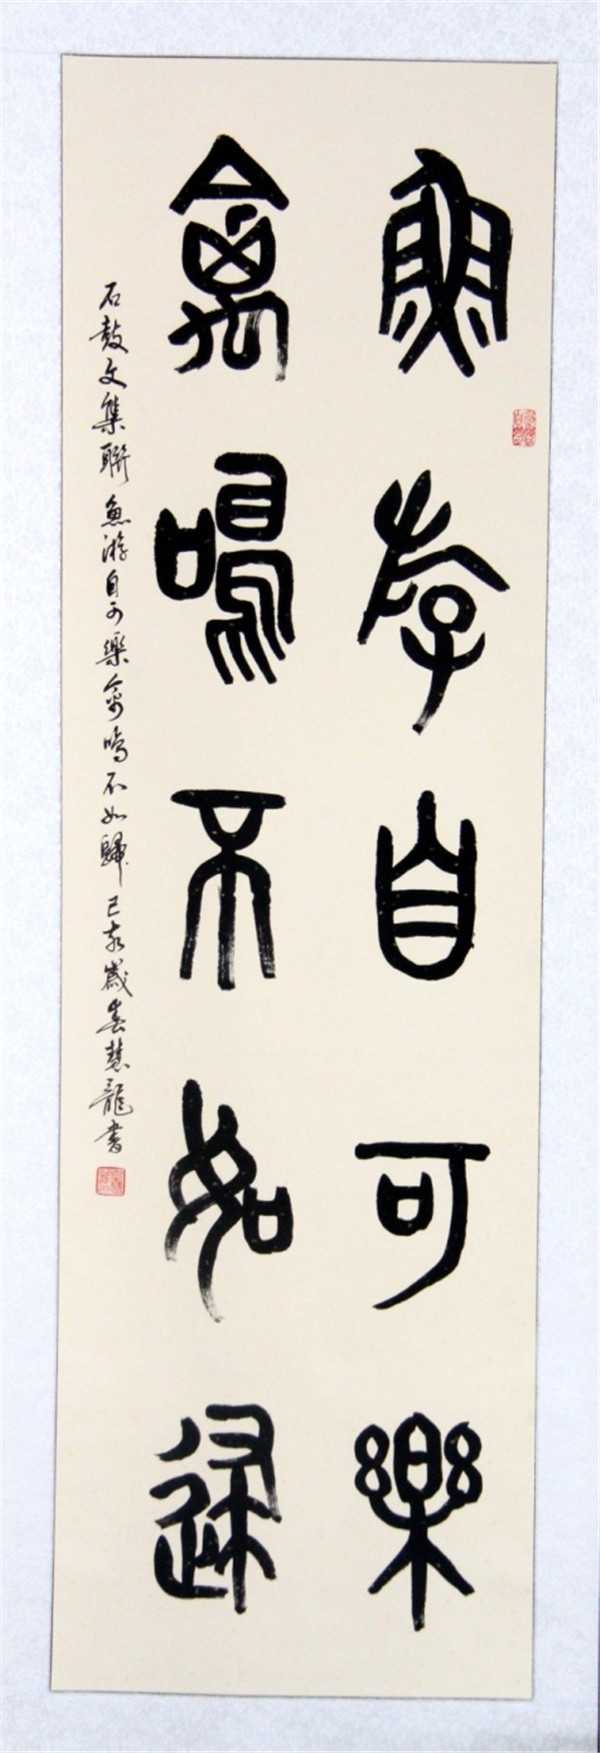 魚游自可樂
禽鳴不如歸
石鼓文集聯魚游自可樂禽鳴不如歸己亥歲春慧龍書